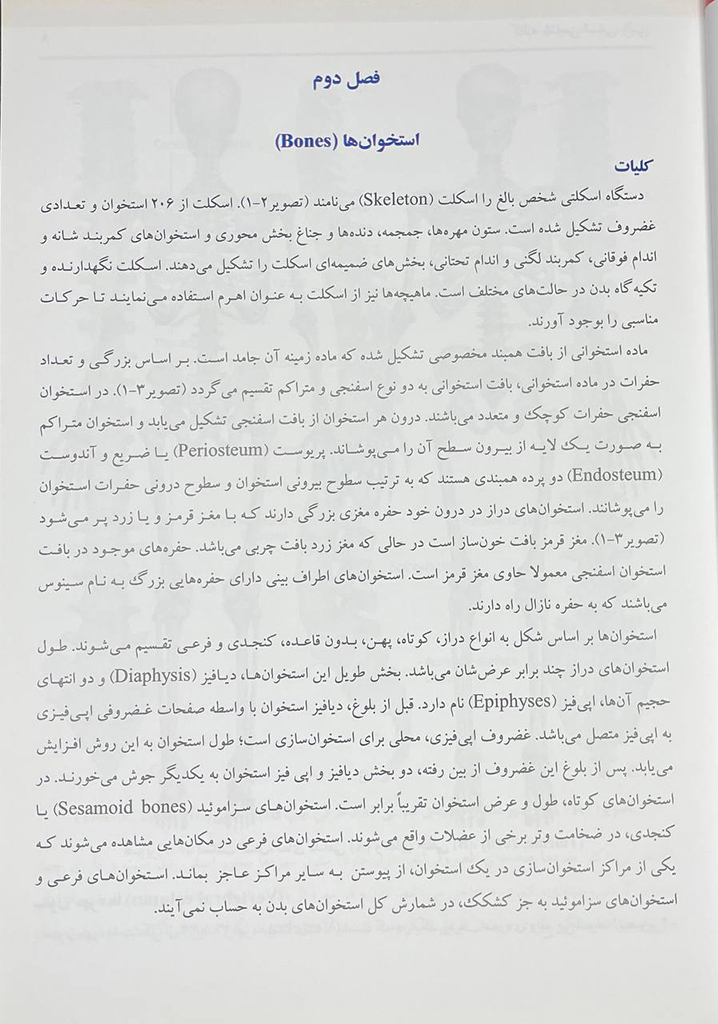 فصل دوم
استخوان‌ها (Bones)
کلیات
دستگاه اسکلتی شخص بالغ را اسکلت (Skeleton) می‌نامند (تصویر۲-۱). اسکلت از ۲۰۶ استخوان و تعدادی
غضروف تشکیل شده است. ستون مهره‌ها، جمجمه، دنده‌ها و جناغ بخش محوری و استخوان‌های کمربند شانه و
اندام فوقانی، کمربند لگنی و اندام تحتانی، بخش‌های ضمیمه‌ای اسکلت را تشکیل می‌دهند. اسکلت نگهدارنده و
تکیه‌گاه بدن در حالت‌های مختلف است. ماهیچه‌ها نیز از اسکلت به عنوان اهرم استفاده می‌نمایند تا حرکات
مناسبی را بوجود آورند.
ماده استخوانی از بافت همبند مخصوصی تشکیل شده که ماده زمینه آن جامد است. بر اساس بزرگی و تعداد
حفرات در ماده استخوانی، بافت استخوانی به دو نوع اسفنجی و متراکم تقسیم می‌گردد (تصویر۳-۱). در استخوان
اسفنجی حفرات کوچک و متعدد می‌باشند. درون هر استخوان از بافت اسفنجی تشکیل می‌یابد و استخوان متراکم
به صورت یک لایه از بیرون سطح آن را می‌پوشاند. پریوست (Periosteum) یا ضریع و آندوست
(Endosteum) دو پرده همبندی هستند که به ترتیب سطوح بیرونی استخوان و سطوح درونی حفرات استخوان
را می‌پوشانند. استخوان‌های دراز در درون خود حفره مغزی بزرگی دارند که با مغز قرمز و یا زرد پر می‌شود
(تصویر۳-۱). مغز قرمز بافت خون‌ساز است در حالی که مغز زرد بافت چربی می‌باشد. حفره‌های موجود در بافت
استخوان اسفنجی معمولا حاوی مغز قرمز است. استخوان‌های اطراف بینی دارای حفره‌هایی بزرگ به نام سینوس
می‌باشند که به حفره نازال راه دارند.
استخوان‌ها بر اساس شکل به انواع دراز، کوتاه، پهن، بدون قاعده، کنجدی و فرعی تقسیم می‌شوند. طول
استخوان‌های دراز چند برابر عرض‌شان می‌باشد. بخش طویل این استخوان‌ها، دیافیز (Diaphysis) و دو انتهای
حجیم آن‌ها، اپی‌فیز (Epiphyses) نام دارد. قبل از بلوغ، دیافیز استخوان با واسطه صفحات غضروفی اپی‌فیزی
به اپی‌فیز متصل می‌باشد. غضروف اپی‌فیزی، محلی برای استخوان‌سازی است؛ طول استخوان به این روش افزایش
می‌یابد. پس از بلوغ این غضروف از بین رفته، دو بخش دیافیز و اپی فیز استخوان به یکدیگر جوش می‌خورند. در
استخوان‌های کوتاه، طول و عرض استخوان تقریباً برابر است. استخوان‌های سزاموئید (Sesamoid bones) یا
کنجدی، در ضخامت وتر برخی از عضلات واقع می‌شوند. استخوان‌های فرعی در مکان‌هایی مشاهده می‌شوند که
یکی از مراکز استخوان‌سازی در یک استخوان، از پیوستن به سایر مراکز عاجز بماند. استخوان‌های فرعی و
استخوان‌های سزاموئید به جز کشکک، در شمارش کل استخوان‌های بدن به حساب نمی‌آیند.